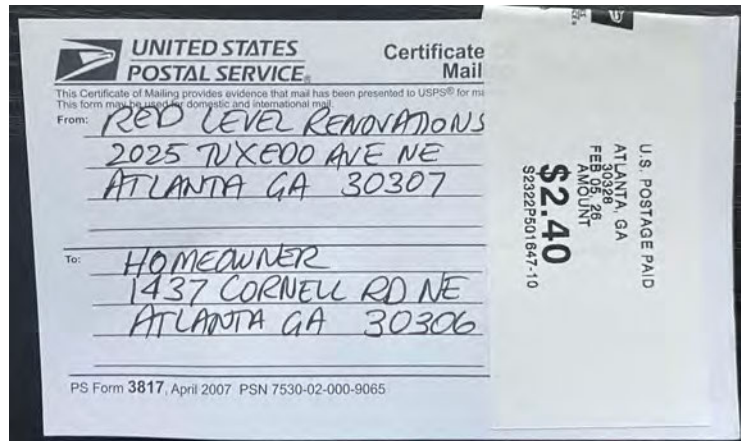 UNITED STATES
POSTAL SERVICE®
Certificate
Mail
This Certificate of Mailing provides evidence that mail has been presented to USPS® for
This form may be used for domestic and international mail.
From: RED LEVEL RENOVATIONS
2025 TUXEDO AVE NE
ATLANTA GA 30307
To: HOMEOWNER
1437 CORNELL RD NE
ATLANTA GA 30306
PS Form 3817, April 2007 PSN 7530-02-000-9065
U.S. POSTAGE PAID
ATLANTA, GA
30328
FEB 05, 26
AMOUNT
$2.40
S2322P501647-10